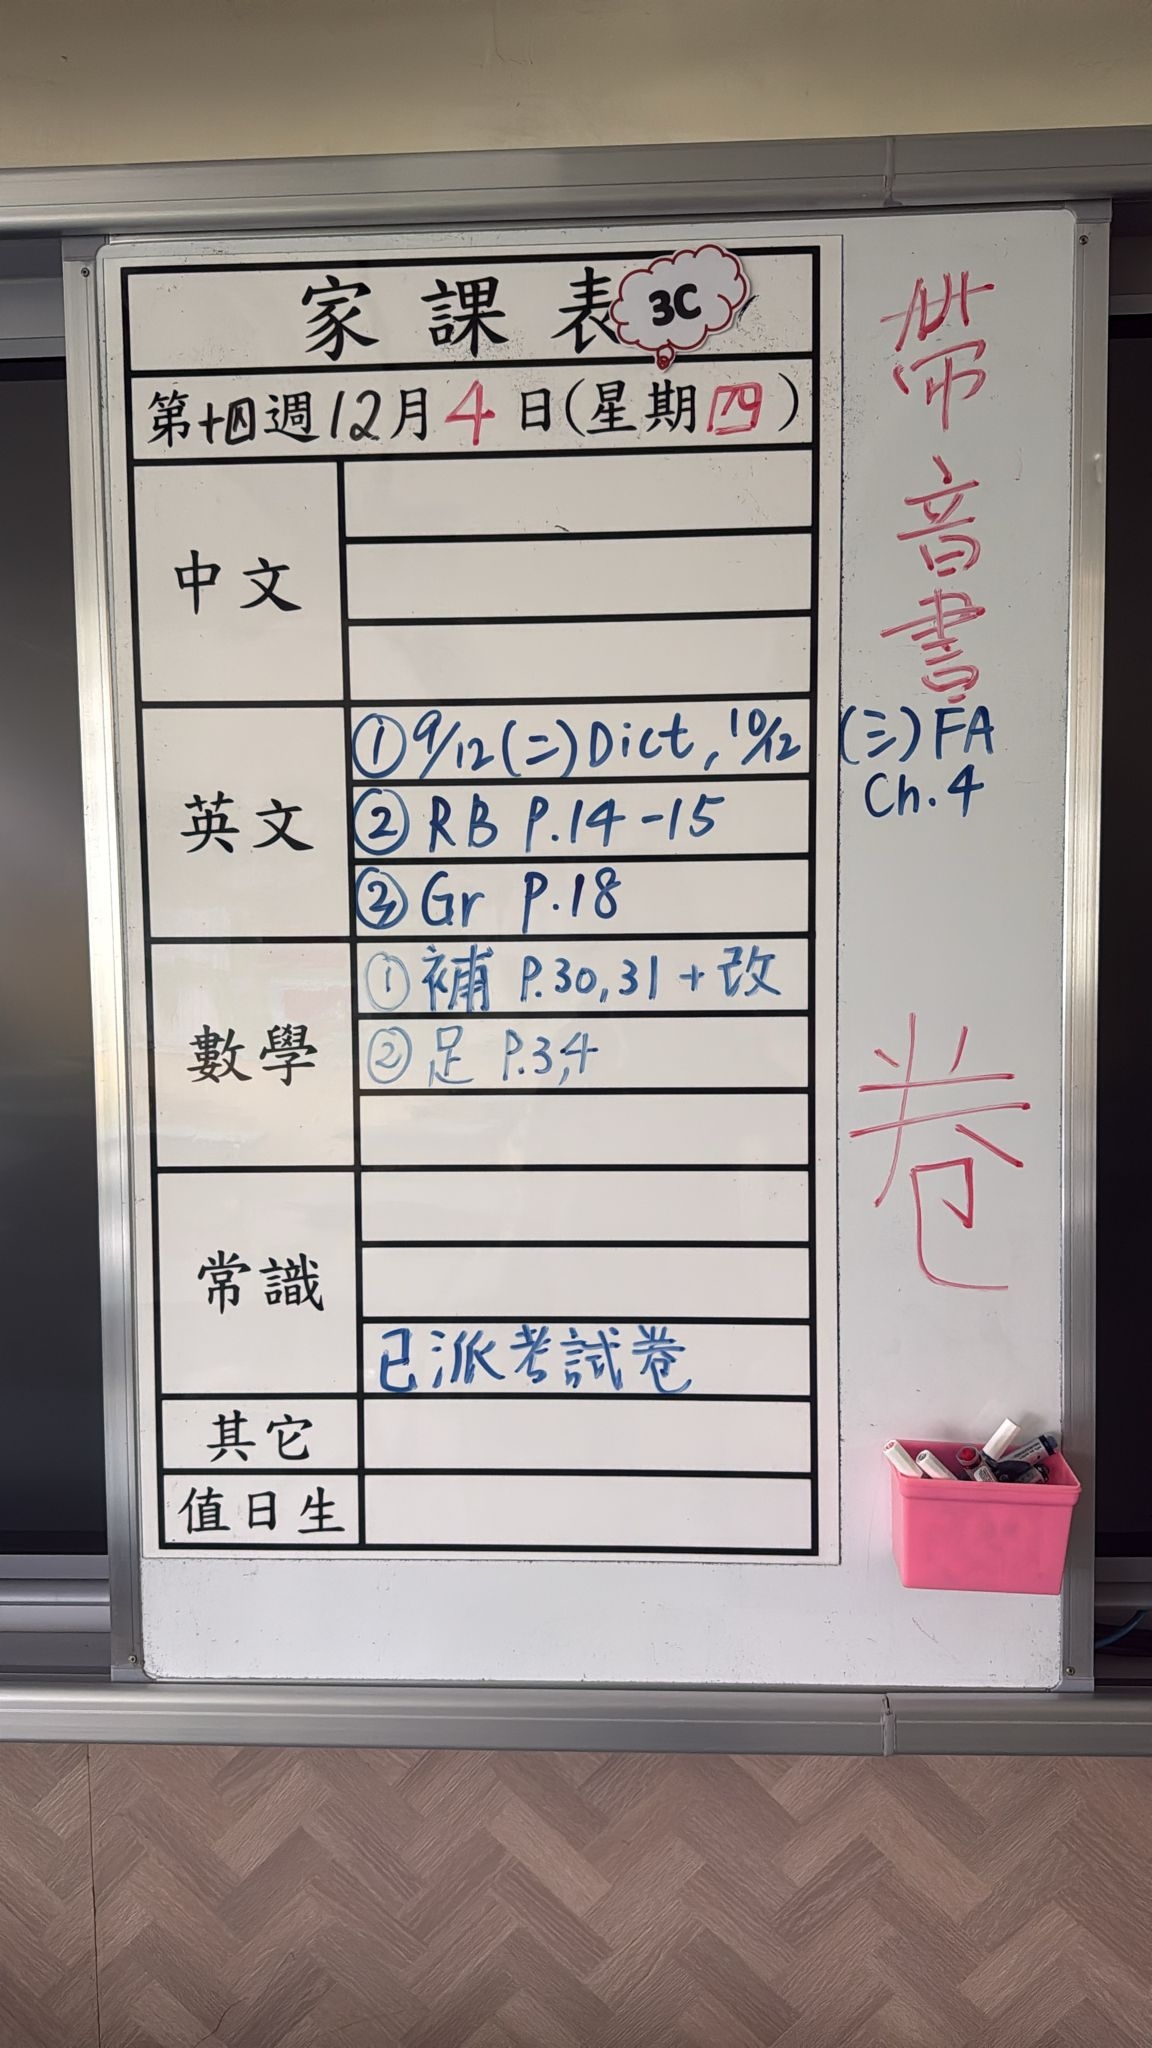 家課表 3C
第十四週12月4日(星期四)
中文
英文
①9/12(二)Dict, 10/12 (三)FA
Ch.4
②RB P.14-15
③Gr P.18
數學
①補 P.30,31+改
②足 P.3,4
常識
已派考試卷
其它
值日生
帶音書
卷